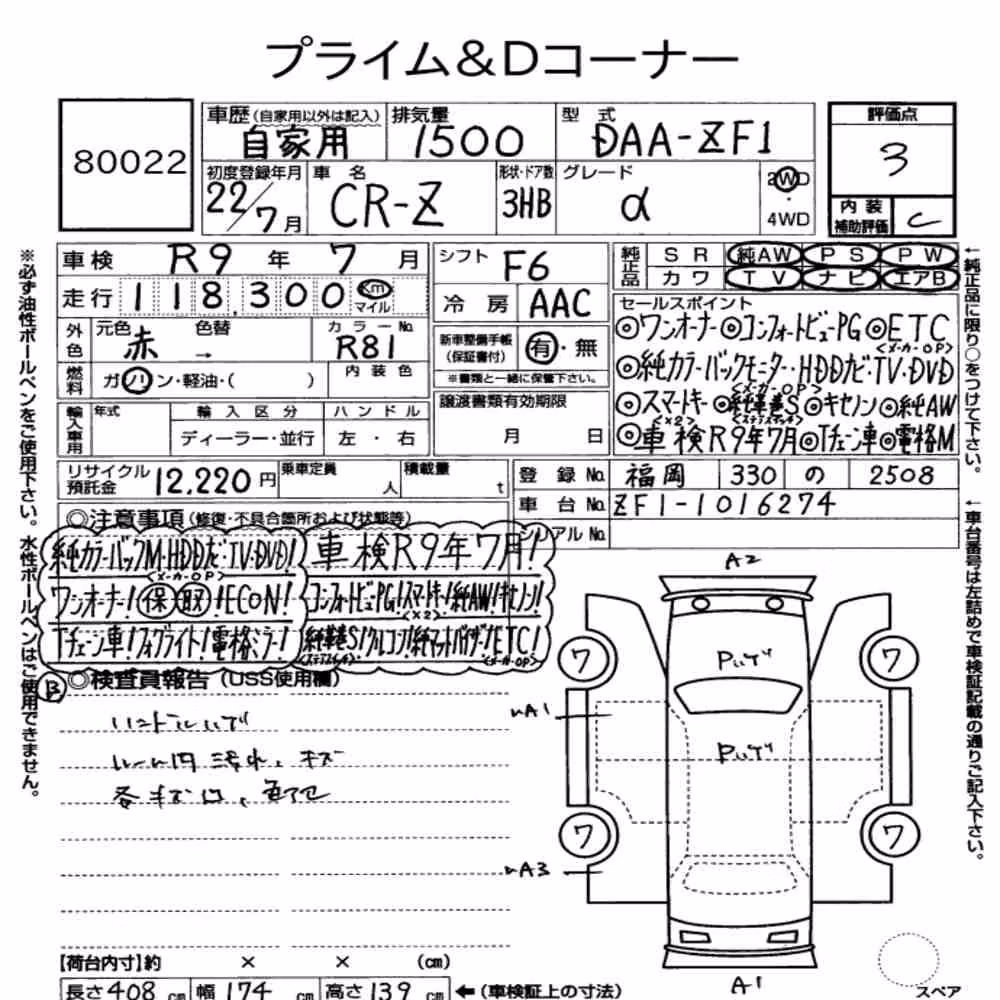 プライム&Dコーナー
80022
車歴(自家用以外は記入) 自家用
排気量 1500
型式 DAA-ZF1
評価点 3
内装補助評価 C
初度登録年月 22/7月
車名 CR-Z
形状・ドア数 3HB
グレード α
2WD・4WD
車検 R9年7月
シフト F6
純正品 SR 純AW PS PW
カワ TV ナビ エアB
走行 118,300 km マイル
冷房 AAC
セールスポイント
◎ワンオーナー◎コンフォートビューPG◎ETC
<メーカーOP>
◎純カラーバックモニター・HDDナビ・TV・DVD
<メーカーOP>
◎スマートキー◎純革巻S◎キセノン◎純AW
<×2> <ステアスイッチ>
◎車検R9年7月◎Tチェーン車◎電格M
外色 元色 赤 色替 →
カラーNo. R81
新車整備手帳(保証書付) 有・無
※書類と一緒に保管下さい。
燃料 ガソリン・軽油・( )
内装色
輸入車用 年式 輸入区分 ハンドル
ディーラー・並行 左・右
譲渡書類有効期限
月 日
リサイクル預託金 12,220円
乗車定員 人
積載量 t
登録No. 福岡 330 の 2508
車台No. ZF1-1016274
シリアルNo.
◎注意事項(修復・不具合箇所および状態等)
純カラーバックM・HDDナビ・TV・DVD!
<メーカーOP>
車検R9年7月!
ワンオーナー!保取!ECON!
コンフォートビューPG!スマートキー!純AW!キセノン!
<×2>
Tチェーン車!フォグライト!電格ミラー!
純革巻S!クルコン!純マットバイザー!ETC!
<ステアスイッチ> <メーカーOP>
B
◎検査員報告(USS使用欄)
ハンドルハゲ
汚れ、キズ
各キズ凹、色アセ
A2
Pハゲ
Pハゲ
A1
A3
A1
ワ
ワ
ワ
ワ
スペア
【荷台内寸】約 × × (cm)
長さ408cm 幅174cm 高さ139cm ←(車検証上の寸法)
※必ず油性ボールペンをご使用下さい。水性ボールペンはご使用できません。
←純正品に限り○をつけて下さい。
←車台番号は左詰めで車検証記載の通りご記入下さい。